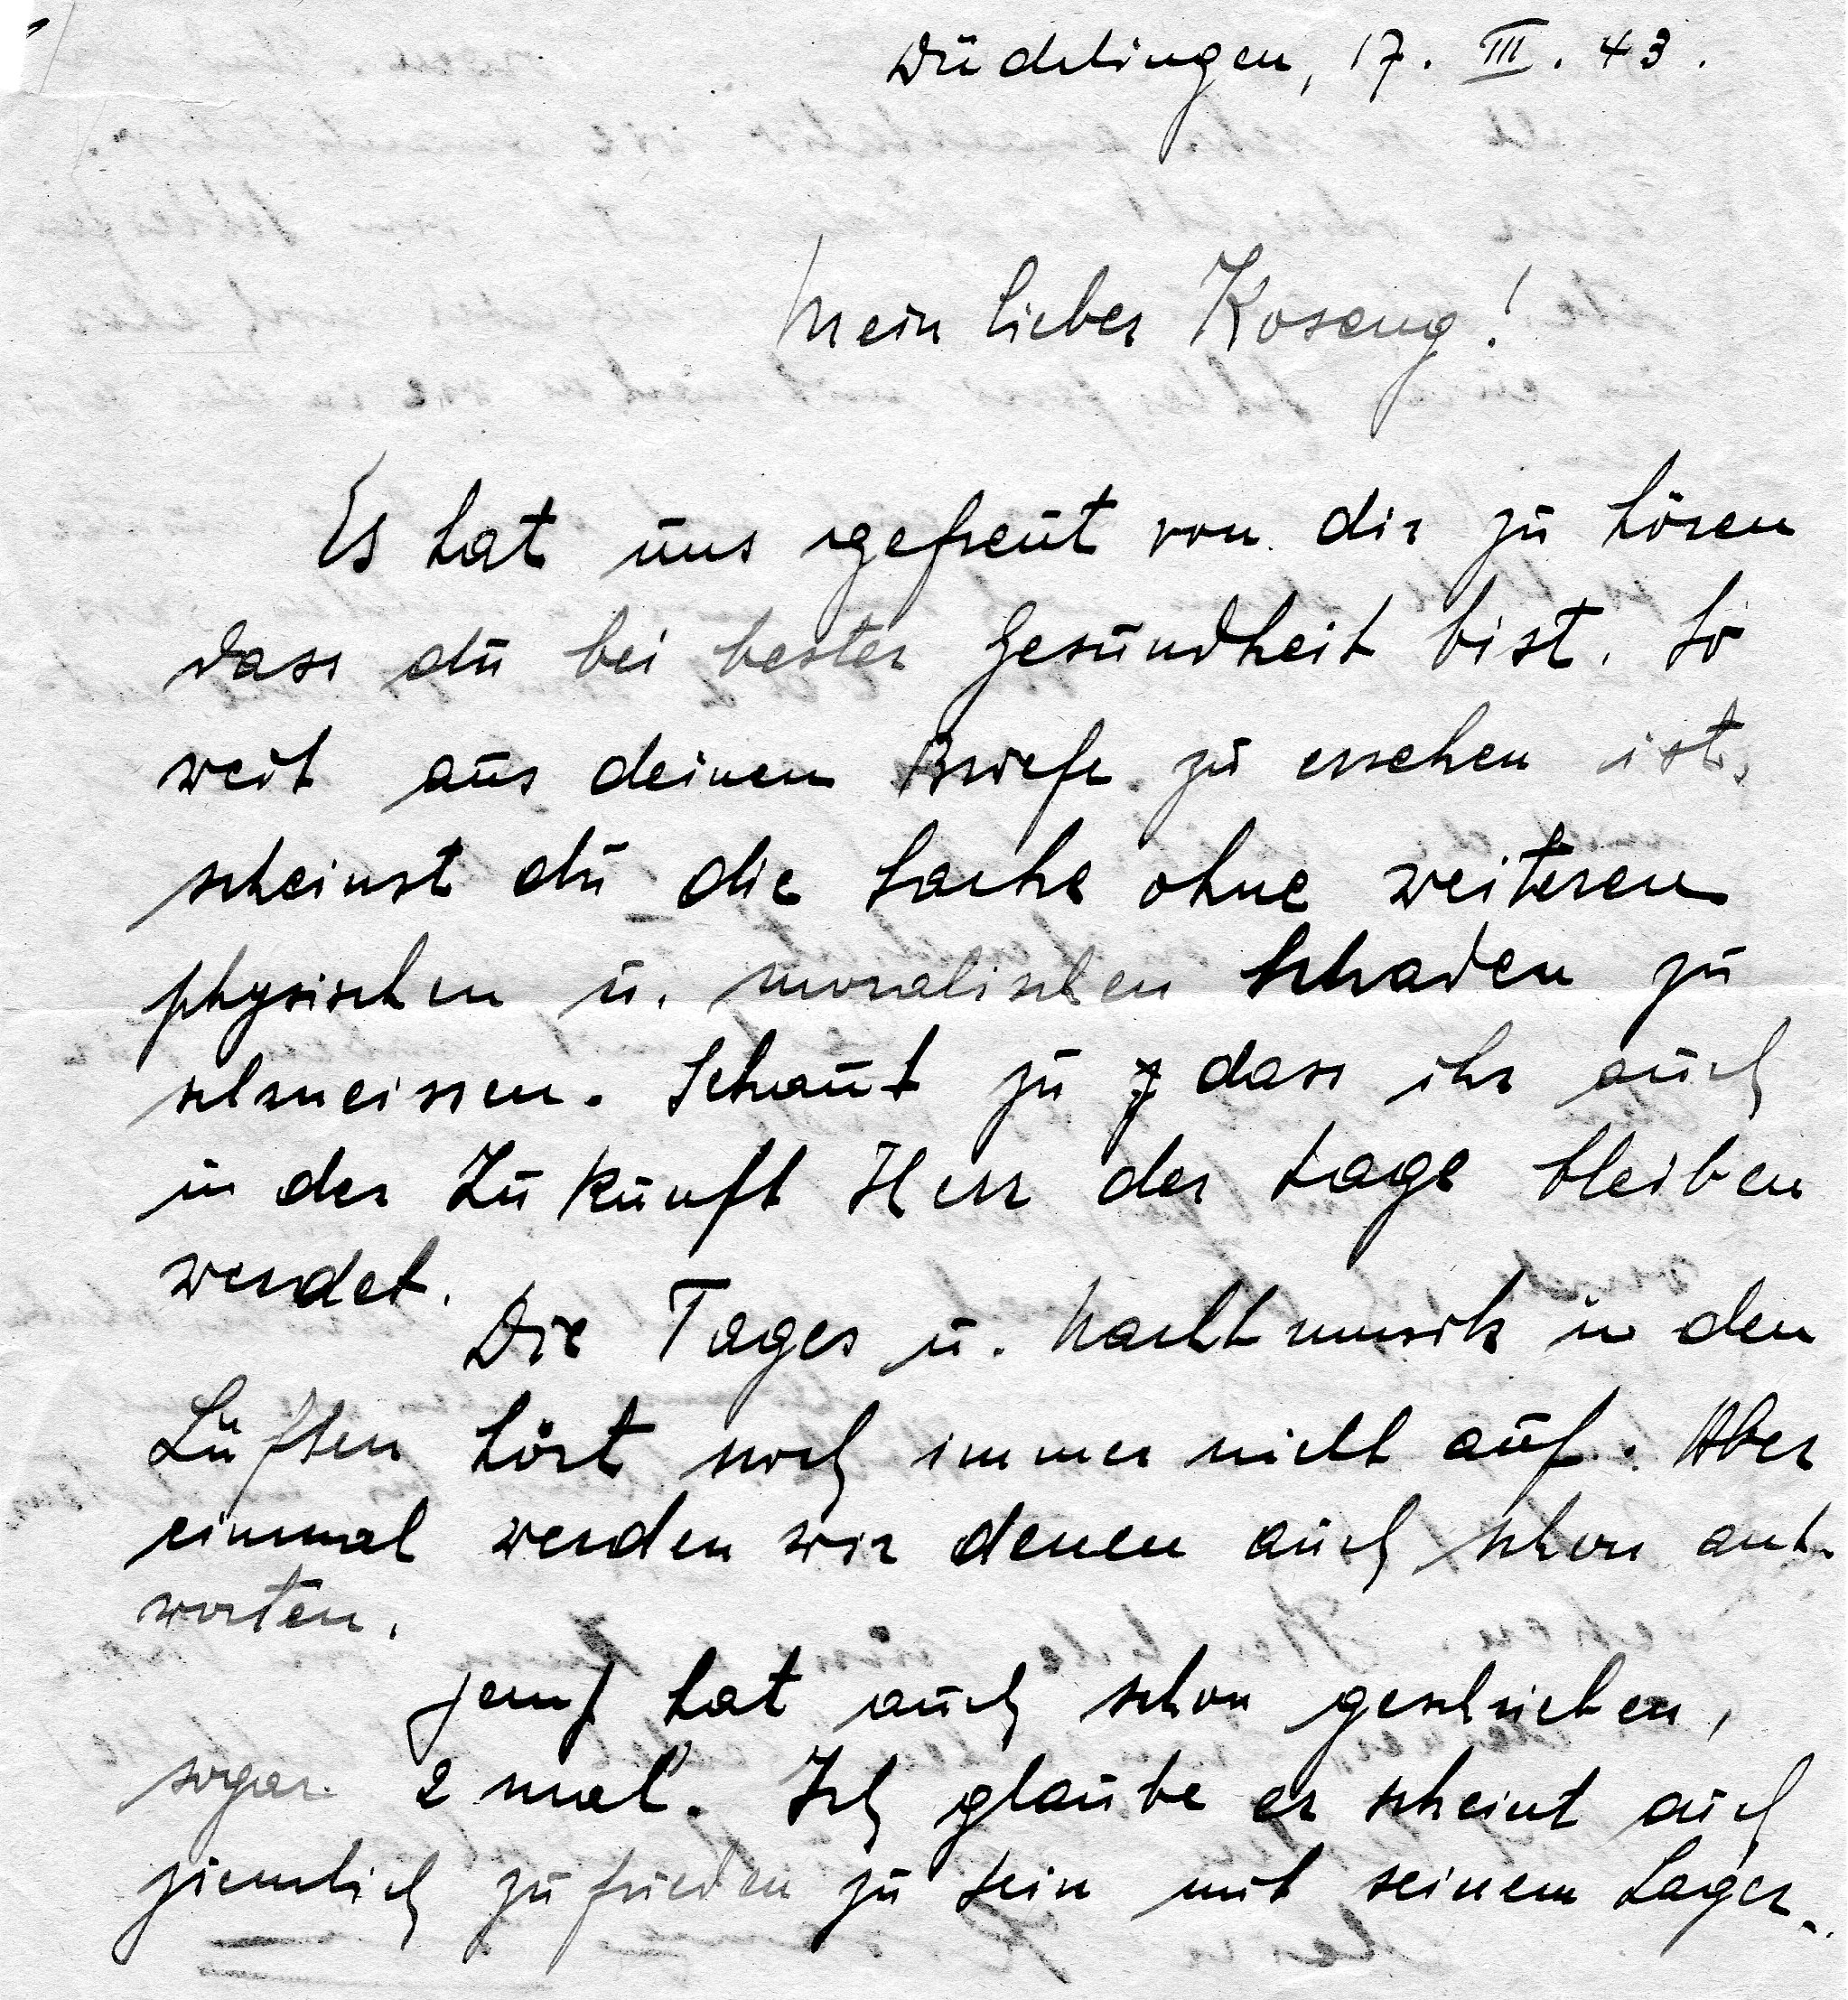 Düdelingen, 17. III. 43.
Mein lieber Koseng!
Es hat uns gefreut von dir zu hören
dass du bei bester Gesundheit bist. So
weit aus deinem Briefe zu ersehen ist,
scheinst du die Sache ohne weiteren
physischen u. moralischen Schaden zu
schmeissen. Schaut zu dass ihr auch
in der Zukunft Herr der Lage bleiben
werdet.
Die Tages u. Nachtmusik in den
Lüften hört noch immer nicht auf. Aber
einmal werden wir denen auch schon ant-
worten.
hat auch schon geschrieben,
sogar 2 mal. Ich glaube er scheint auch
ziemlich zufrieden zu sein mit seinem Lager.